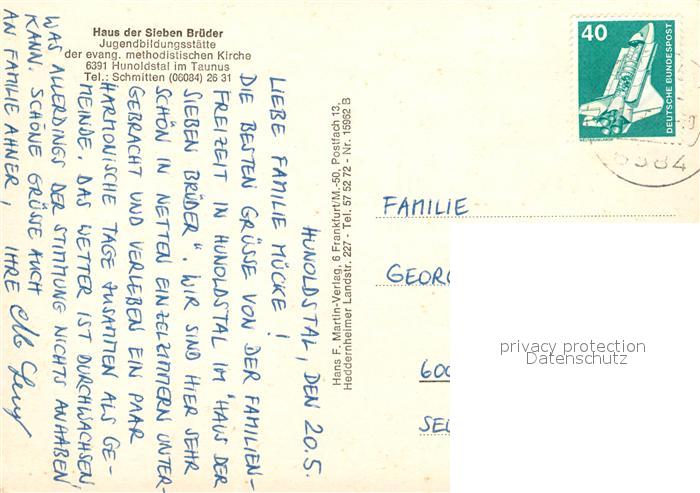 Haus der Sieben Brüder
Jugendbildungsstätte
der evang. methodistischen Kirche
6391 Hunoldstal im Taunus
Tel.: Schmitten (06084) 26 31
HUNOLDSTAL, DEN 20.5.
LIEBE FAMILIE MÜCKE!
DIE BESTEN GRÜSSE VON DER FAMILIEN-
FREIZEIT IN HUNOLDSTAL IM "HAUS DER
SIEBEN BRÜDER". WIR SIND HIER SEHR
SCHÖN IN NETTEN EINZELZIMMERN UNTER-
GEBRACHT UND VERLEBEN EIN PAAR
HARMONISCHE TAGE ZUSAMMEN ALS GE-
MEINDE. DAS WETTER IST DURCHWACHSEN,
WAS ALLERDINGS DER STIMMUNG NICHTS ANHABEN
KANN. SCHÖNE GRÜSSE AUCH
AN FAMILIE AHNER, IHRE
Hans F. Martin-Verlag, 6 Frankfurt/M.-50, Postfach 13,
Heddernheimer Landstr. 227 - Tel. 57 52 72 - Nr. 15962 B
40
DEUTSCHE BUNDESPOST
WELTRAUMLABOR
6384
FAMILIE
GEORG
600
SEL
privacy protection
Datenschutz